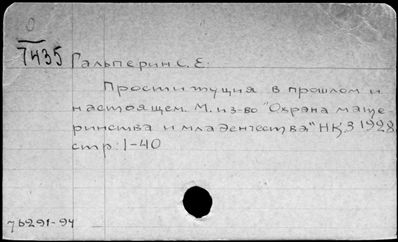 0
7435
Гальперин С. Е.
Проституция в прошлом и
настоящем. М. из-во "Охрана мате
ринства и младенчества" НКЗ 1928
стр: 1-40
76291-94